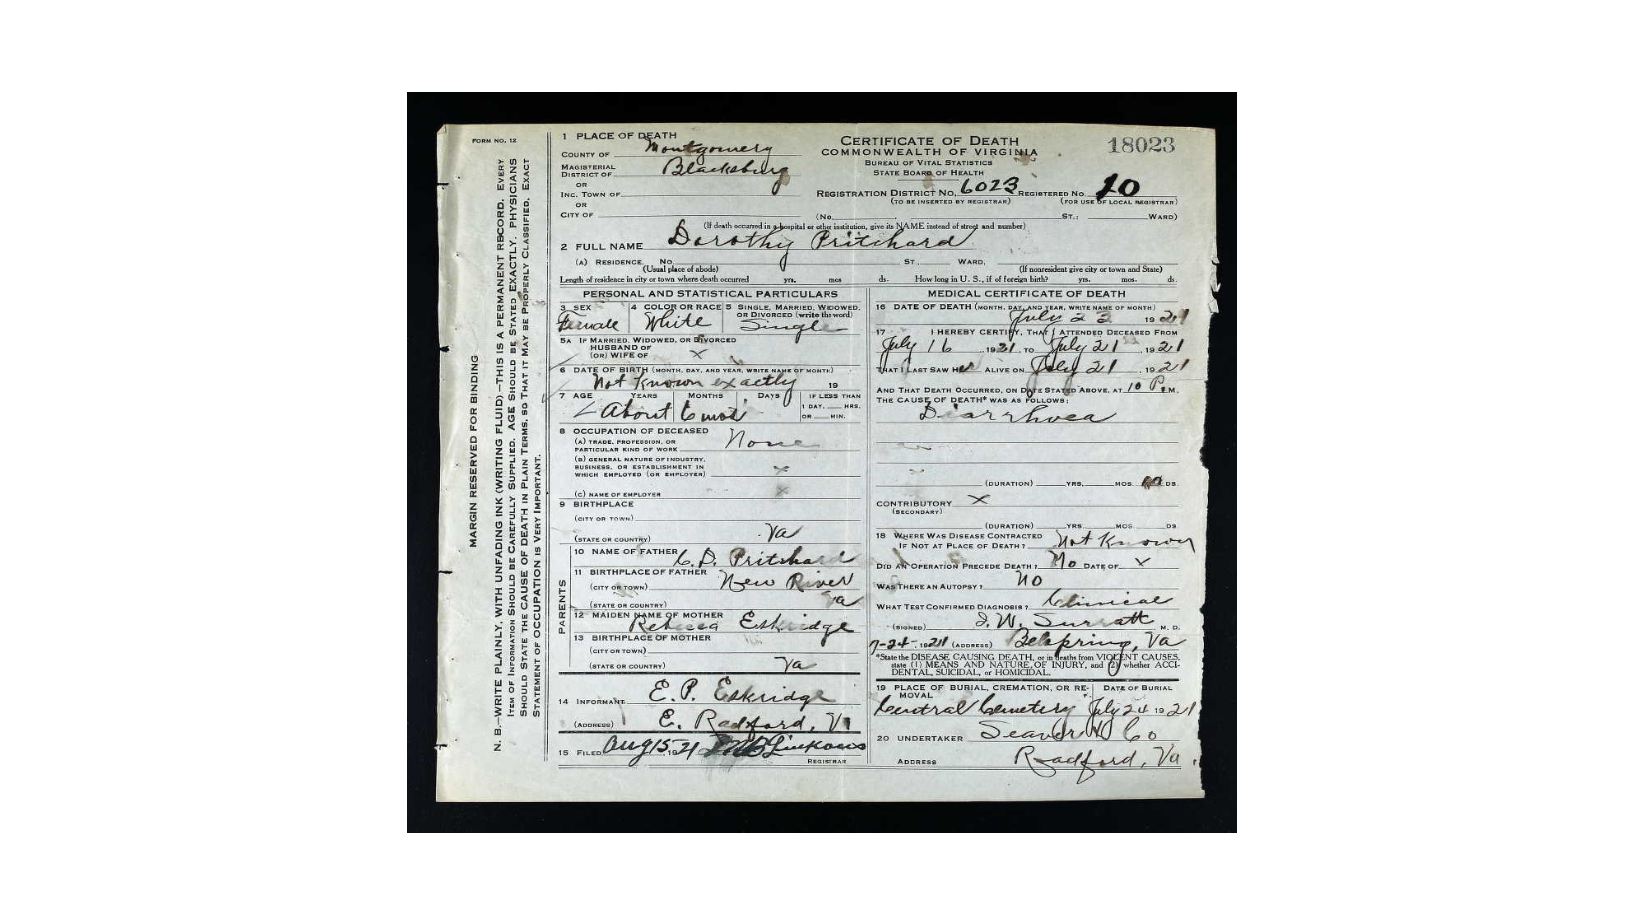 FORM NO. 12
MARGIN RESERVED FOR BINDING
N. B.—WRITE PLAINLY, WITH UNFADING INK (WRITING FLUID)—THIS IS A PERMANENT RECORD. EVERY
ITEM OF INFORMATION SHOULD BE CAREFULLY SUPPLIED. AGE SHOULD BE STATED EXACTLY. PHYSICIANS
SHOULD STATE THE CAUSE OF DEATH IN PLAIN TERMS, SO THAT IT MAY BE PROPERLY CLASSIFIED. EXACT
STATEMENT OF OCCUPATION IS VERY IMPORTANT.
1 PLACE OF DEATH
COUNTY OF Montgomery
MAGISTERIAL DISTRICT OF Blacksburg
OR
INC. TOWN OF
OR
CITY OF
CERTIFICATE OF DEATH
COMMONWEALTH OF VIRGINIA
BUREAU OF VITAL STATISTICS
STATE BOARD OF HEALTH
18023
REGISTRATION DISTRICT NO. 6023 REGISTERED NO. 10
(TO BE INSERTED BY REGISTRAR) (FOR USE OF LOCAL REGISTRAR)
(No. ST.; WARD)
(If death occurred in a hospital or other institution, give its NAME instead of street and number)
2 FULL NAME Dorothy Pritchard
(A) RESIDENCE. No. ST. WARD,
(Usual place of abode) (If nonresident give city or town and State)
Length of residence in city or town where death occurred yrs. mos ds. How long in U. S., if of foreign birth? yrs. mos. ds.
PERSONAL AND STATISTICAL PARTICULARS
3 SEX 4 COLOR OR RACE 5 SINGLE, MARRIED, WIDOWED, OR DIVORCED (write the word)
Female White Single
5A IF MARRIED, WIDOWED, OR DIVORCED
HUSBAND OF
(OR) WIFE OF X
6 DATE OF BIRTH (MONTH, DAY, AND YEAR, WRITE NAME OF MONTH)
Not Known exactly 19
7 AGE YEARS MONTHS DAYS IF LESS THAN
1 DAY, HRS.
OR MIN.
About 6 mos
8 OCCUPATION OF DECEASED
(A) TRADE, PROFESSION, OR
PARTICULAR KIND OF WORK None
(B) GENERAL NATURE OF INDUSTRY,
BUSINESS, OR ESTABLISHMENT IN
WHICH EMPLOYED (OR EMPLOYER) x
(C) NAME OF EMPLOYER x
9 BIRTHPLACE
(CITY OR TOWN)
(STATE OR COUNTRY) Va
PARENTS
10 NAME OF FATHER C. D. Pritchard
11 BIRTHPLACE OF FATHER
(CITY OR TOWN) New River
(STATE OR COUNTRY) Va
12 MAIDEN NAME OF MOTHER
Rebecca Eskridge
13 BIRTHPLACE OF MOTHER
(CITY OR TOWN)
(STATE OR COUNTRY) Va
14 INFORMANT E. P. Eskridge
(ADDRESS) E. Radford, Va
15 FILED Aug 15 1921
REGISTRAR
MEDICAL CERTIFICATE OF DEATH
16 DATE OF DEATH (MONTH, DAY, AND YEAR, WRITE NAME OF MONTH)
July 23 1921
17 I HEREBY CERTIFY, THAT I ATTENDED DECEASED FROM
July 16, 1921, TO July 21, 1921
THAT I LAST SAW HER ALIVE ON July 21, 1921
AND THAT DEATH OCCURRED, ON DATE STATED ABOVE, AT 10 P.M.
THE CAUSE OF DEATH* WAS AS FOLLOWS:
Diarrhoea
(DURATION) YRS. MOS. 10 DS.
CONTRIBUTORY X
(SECONDARY)
(DURATION) YRS. MOS. DS.
18 WHERE WAS DISEASE CONTRACTED
IF NOT AT PLACE OF DEATH? Not Known
DID AN OPERATION PRECEDE DEATH? No DATE OF x
WAS THERE AN AUTOPSY? No
WHAT TEST CONFIRMED DIAGNOSIS? Clinical
(SIGNED) J. W. Surratt M. D.
7-24-, 1921 (ADDRESS) Belspring, Va
*State the DISEASE CAUSING DEATH, or in deaths from VIOLENT CAUSES,
state (1) MEANS AND NATURE OF INJURY, and (2) whether ACCI-
DENTAL, SUICIDAL, or HOMICIDAL.
19 PLACE OF BURIAL, CREMATION, OR RE-
MOVAL
DATE OF BURIAL
Central Cemetery July 24 1921
20 UNDERTAKER Co
ADDRESS Radford, Va.